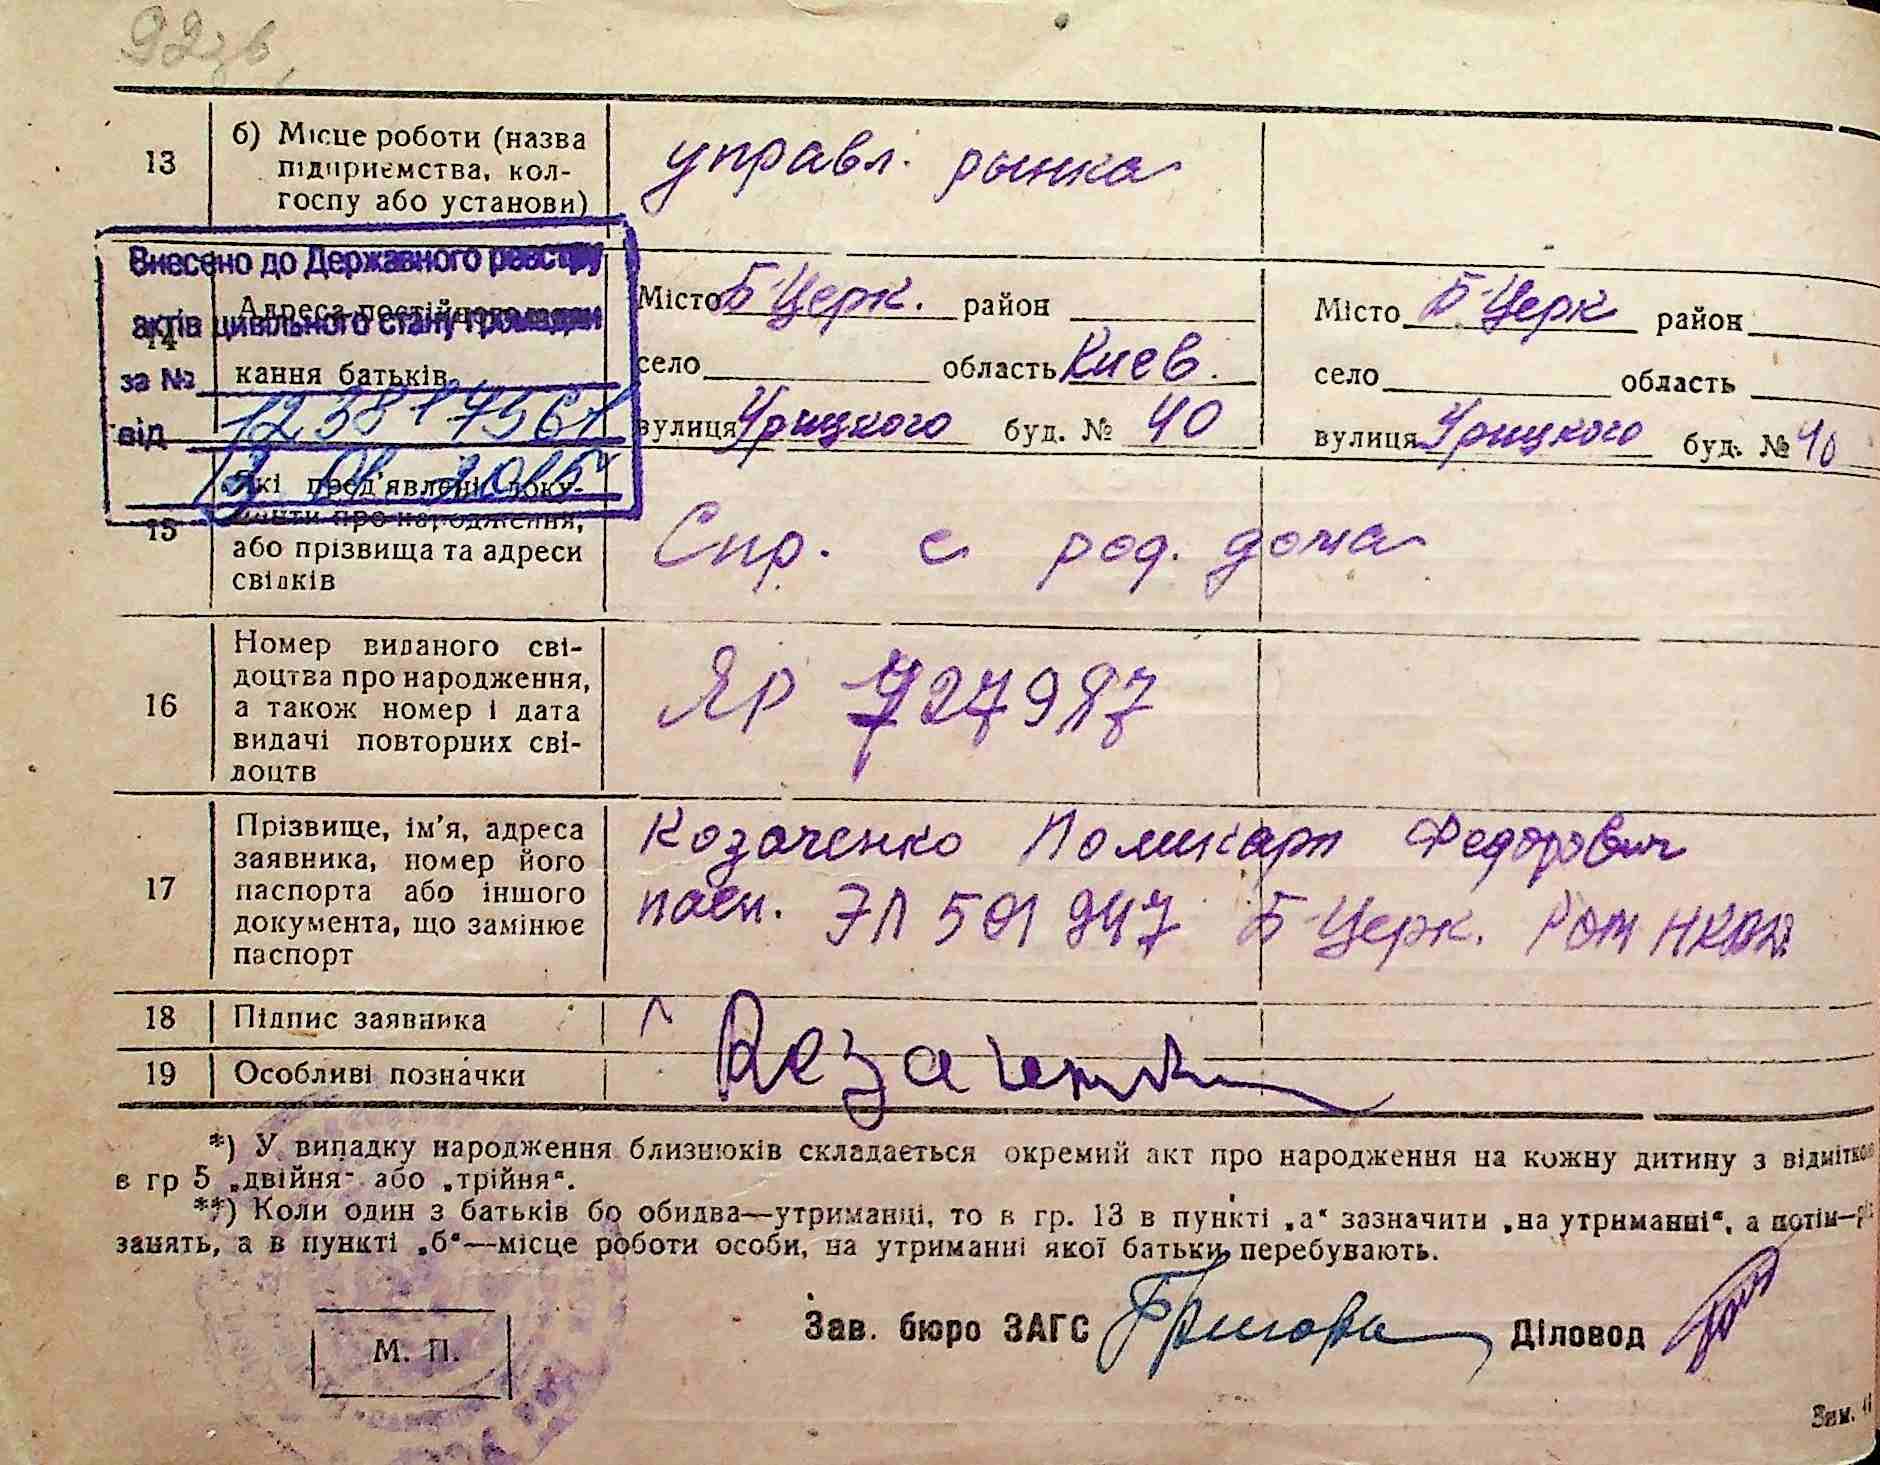 92зв.
13
б) Місце роботи (назва
підприємства, кол-
госпу або установи)
управл. рынка
Внесено до Державного реєстру
актів цивільного стану громадян
за №
від
14
Адреса постійного
кання батьків
Місто Б-Церк. район
село область Киев.
вулиця Урицкого буд. № 40
Місто Б-Церк район
село область
вулиця Урицкого буд. № 40
15
Які пред'явлені доку-
менти про народження,
або прізвища та адреси
свідків
Спр. с род. дома
16
Номер виданого сві-
доцтва про народження,
а також номер і дата
видачі повторних сві-
доцтв
ЯР 727987
17
Прізвище, ім'я, адреса
заявника, номер його
паспорта або іншого
документа, що замінює
паспорт
Козаченко Поликарп Федорович
пасп. ЭЛ 501947 Б-Церк. РОМ НКВД
18
Підпис заявника
Козаченко
19
Особливі позначки
*) У випадку народження близнюків складається окремий акт про народження на кожну дитину з відміткою
в гр 5 „двійня“ або „трійня“.
**) Коли один з батьків бо обидва—утриманці, то в гр. 13 в пункті „а“ зазначити „на утриманні“, а потім—рід
занять, а в пункті „б“—місце роботи особи, на утриманні якої батьки перебувають.
М. П.
Зав. бюро ЗАГС
Діловод
Зам.